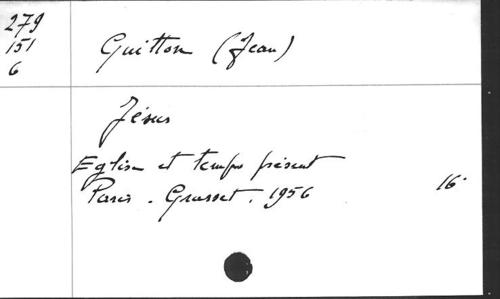 279
151
6
Guitton (Jean)
Jésus
Eglise et temps présent
Paris. Grasset. 1956 16°